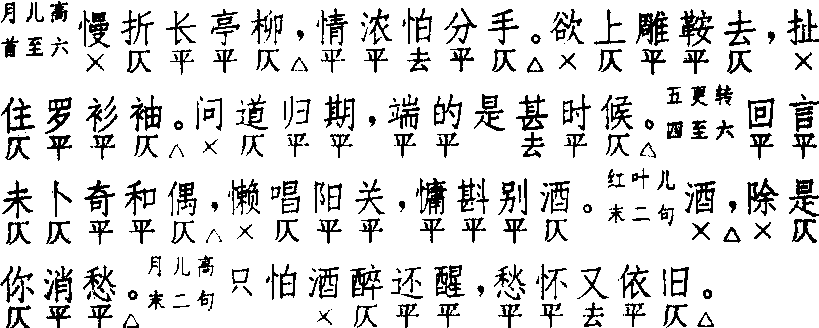 月儿高首至六 慢折长亭柳，情浓怕分手。欲上雕鞍去，扯
× 仄 平 平 仄 △ 平 平 去 平 仄 △ × 仄 平 平 仄 ×
住罗衫袖。问道归期，端的是甚时候。五更转四至六 回言
仄 平 平 仄 △ × 仄 平 平 平 平 去 平 仄 △ 平 平
未卜奇和偶，懒唱阳关，慵斟别酒。红叶儿末二句 酒，除是
仄 仄 平 平 仄 △ × 仄 平 平 平 平 平 仄 △ × △ × 仄
你消愁。月儿高末二句 只怕酒醉还醒，愁怀又依旧。
仄 平 平 △ × 仄 平 平 平 平 去 平 仄 △